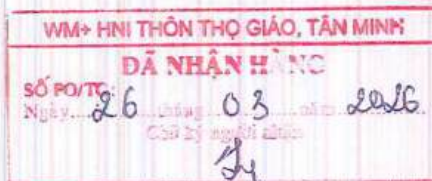 WM+ HNI THÔN THỌ GIÁO, TÂN MINH
ĐÃ NHẬN HÀNG
SỐ PO/TO:
Ngày 26 tháng 03 năm 2026
Chữ ký người nhận